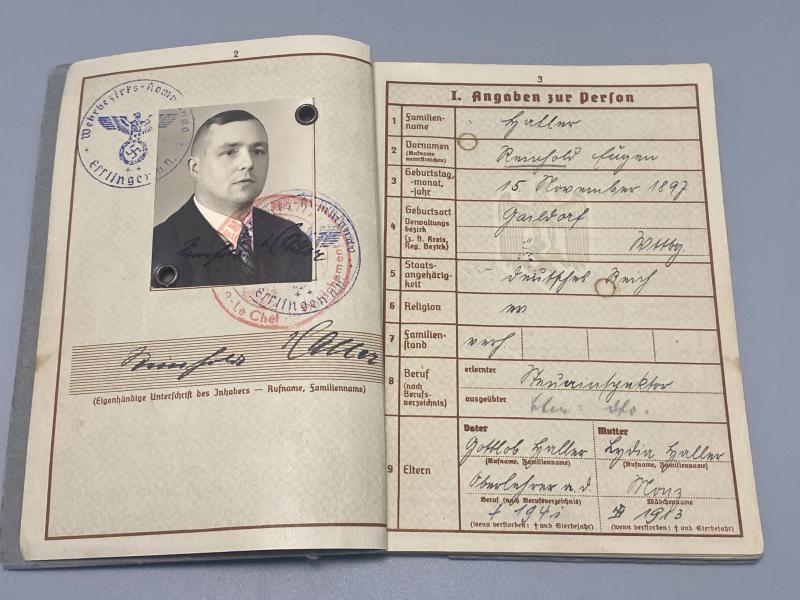 2
Wehrbezirks-Komm
Esslingen a. N.
-Le Chef
Reinhold Haller
(Eigenhändige Unterschrift des Inhabers — Rufname, Familienname)
3
I. Angaben zur Person
1 Familien-
name
Haller
2 Vornamen
(Rufname
unterstreichen)
Reinhold Eugen
3 Geburtstag,
-monat,
-jahr
15. November 1897
4 Geburtsort
Verwaltungs-
bezirk
(z. B. Kreis,
Reg. Bezirk)
Gaildorf
Wttbg.
5 Staats-
angehörig-
keit
deutsches Reich
6 Religion
ev
7 Familien-
stand
verh
8 Beruf
(nach
Berufs-
verzeichnis)
erlernter
Steuerinspektor
ausgeübter
9 Eltern
Vater
Mutter
Gottlob Haller
Lydia Haller
(Rufname, Familienname)
(Rufname, Familienname)
Oberlehrer a. d.
Beruf (nach Berufsverzeichnis)
Mädchenname
† 194
1913
(wenn verstorben: † und Sterbejahr)
(wenn verstorben: † und Sterbejahr)